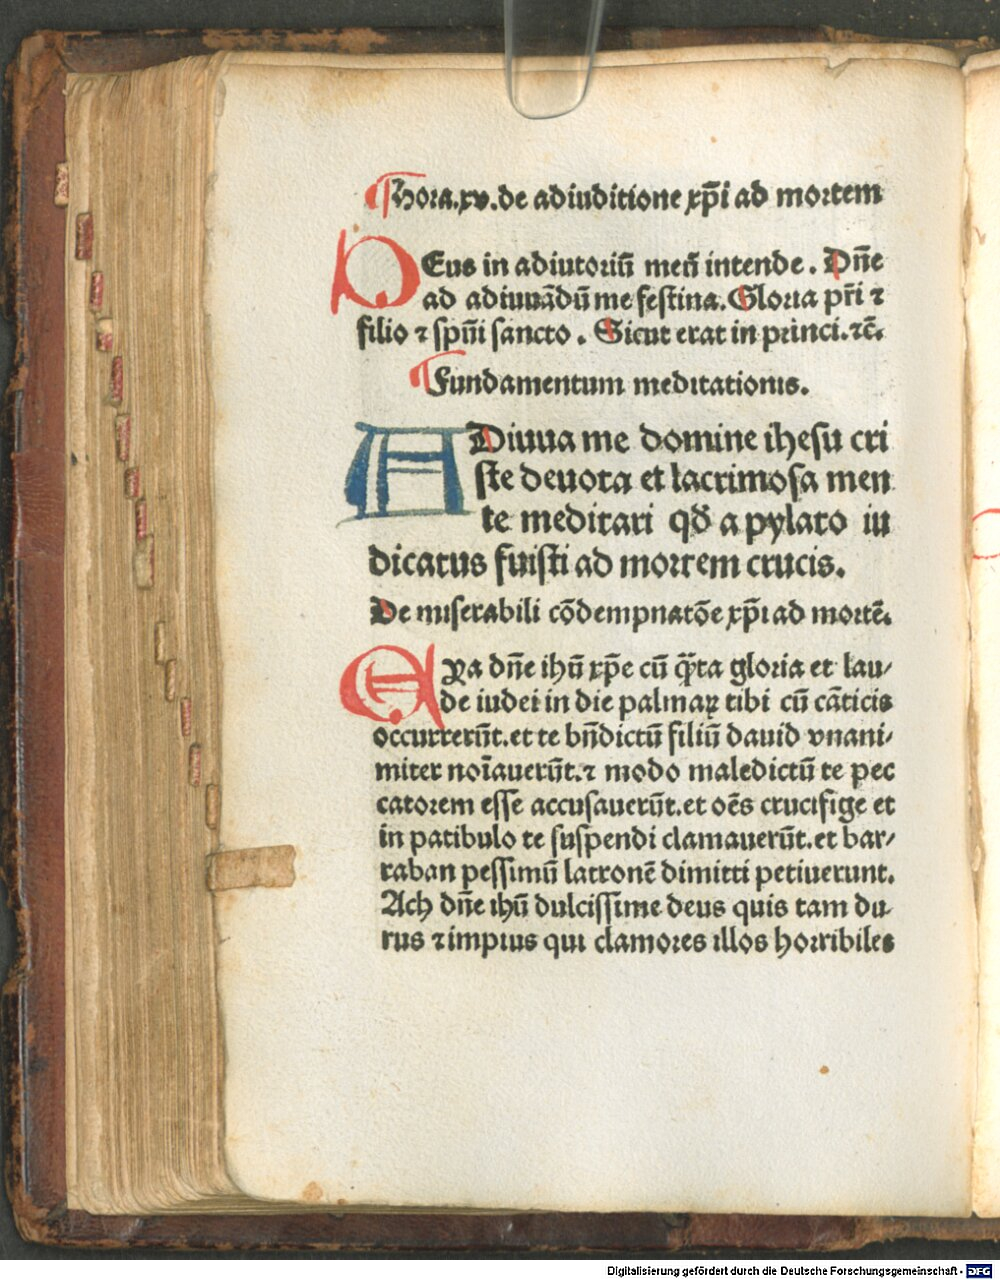 ¶Hora.xv.de adiuditione xp̄i ad mortem
DEus in adiutoriū meū intende. Dn̄e
ad adiuuādū me festina. Gloria pr̄i ⁊
filio ⁊ spūi sancto. Sicut erat in princi.⁊c̄.
¶Fundamentum meditationis.
ADiuua me domine ihesu cri
ste deuota et lacrimosa men
te meditari qď a pylato iu
dicatus fuisti ad mortem crucis.
De miserabili cōdempnatōe xp̄i ad mortē.
ERa dn̄e ihū xp̄e cū q̄ta gloria et lau-
de iudei in die palmaꝝ tibi cū cāticis
occurrerūt.et te bn̄dictū filiū dauid vnani-
miter noīauerūt.⁊ modo maledictū te pec
catorem esse accusauerūt.et oēs crucifige et
in patibulo te suspendi clamauerūt.et bar-
raban pessimū latronē dimitti petiuerunt.
Ach dn̄e ihū dulcissime deus quis tam du-
rus ⁊ impius qui clamores illos horribiles
Digitalisierung gefördert durch die Deutsche Forschungsgemeinschaft - DFG